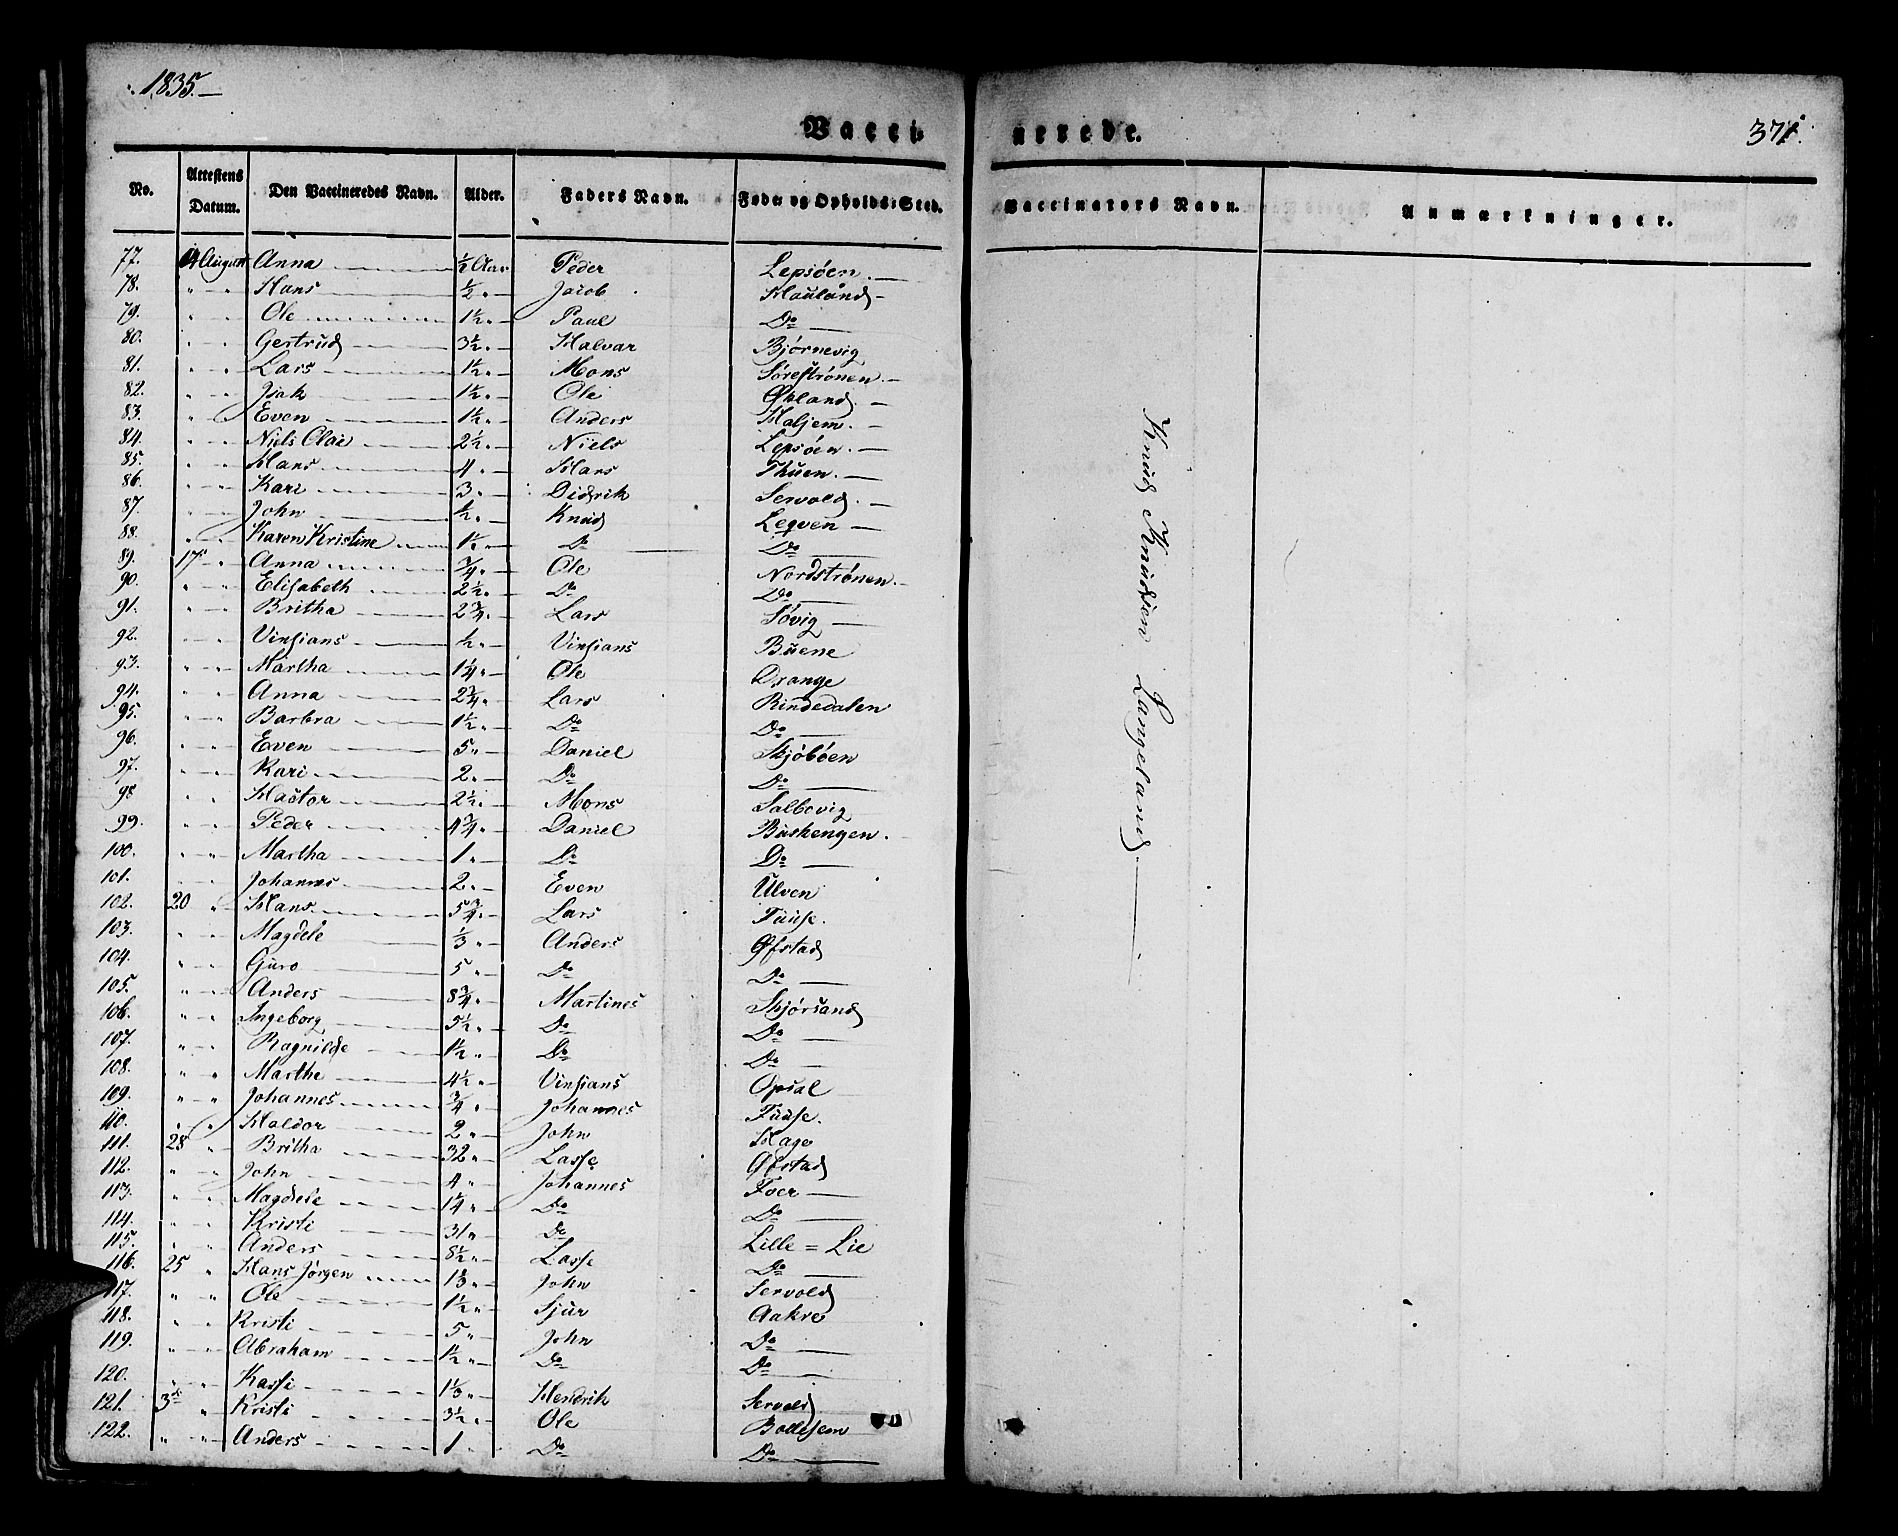 1835.
Vaccinerede.
371.
No. Attestens Datum. Den Vaccineredes Navn. Alder. Faders Navn. Føde og Opholds-Sted. Vaccinators Navn. Anmærkninger.
77. 14 August Anna ½ Aar Peder Lepsöen.
78. " " Hans ½ " Jacob Hauland
79. " " Ole 1½ " Paul Do
80. " " Gertrud 3½ " Halvar Bjørnevig
81. " " Lars 1½ " Mons Söreströnen.
82. " " Isak 1½ " Ole Økland.
83. " " Even 1½ " Anders Haljem.
84. " " Niels Clai 2½ " Niels Lepsöen.
85. " " Hans 4 " Hans Thuen.
86. " " Kari 3 " Didrik Servold.
87. " " John ½ " Knud Leqven
88. " " Karen Kristine 1½ " Do Do
89. 17 " Anna ¾ " Ole Nordströnen.
90. " " Elisabeth 2½ " Do Do
91. " " Britha 2¾ " Lars Sövig
92. " " Vinsians ½ " Vinsians Buene
93. " " Martha 1¼ " Ole Drange
94. " " Anna 2¾ " Lars Rindedalen
95. " " Barbra 1½ " Do Do
96. " " Even 5 " Daniel Skjöböen
97. " " Kari 2 " Do Do
98 " " Hactor 2½ " Mons Salbovig
99. " " Peder 4¾ " Daniel Buskengen.
100. " " Martha 1 " Do Do
101. " " Johannes 2 " Even Ulven
102. 20 " Hans 5¾ " Lars Tuuse.
103. " " Magdele ⅓ " Anders Øfstad
104. " " Guro 5 " Do Do
105. " " Anders 8¾ " Martines Skjörsand
106. " " Ingeborg 5½ " Do Do
107. " " Ragnilde 1½ " Do Do
108. " " Marthe 4½ " Vinsians Opsal
109. " " Johannes ¾ " Johannes Tuuse.
110. " " Haldor 2 " John Hage
111. 28 " Britha 32 " Lasse Øfstad
112. " " John 4 " Johannes Foer
113. " " Magdele 1¼ " Do Do
114. " " Kristi 31 " Do Lille = Lie
115. " " Anders 8½ " Lasse Do
116. 25 " Hans Jörgen 1⅓ " John Servold
117. " " Ole 1½ " Sjur Aakre
118. " " Kristi 5 " John Do
119. " " Abraham 1½ " Do Do
120. " " Kasti 1⅓ " Hendrik Servold
121. 3 " Kristi 3½ " Ole Bollesem
122. " " Anders 1 Do Do
Knud Knudsen Langeland